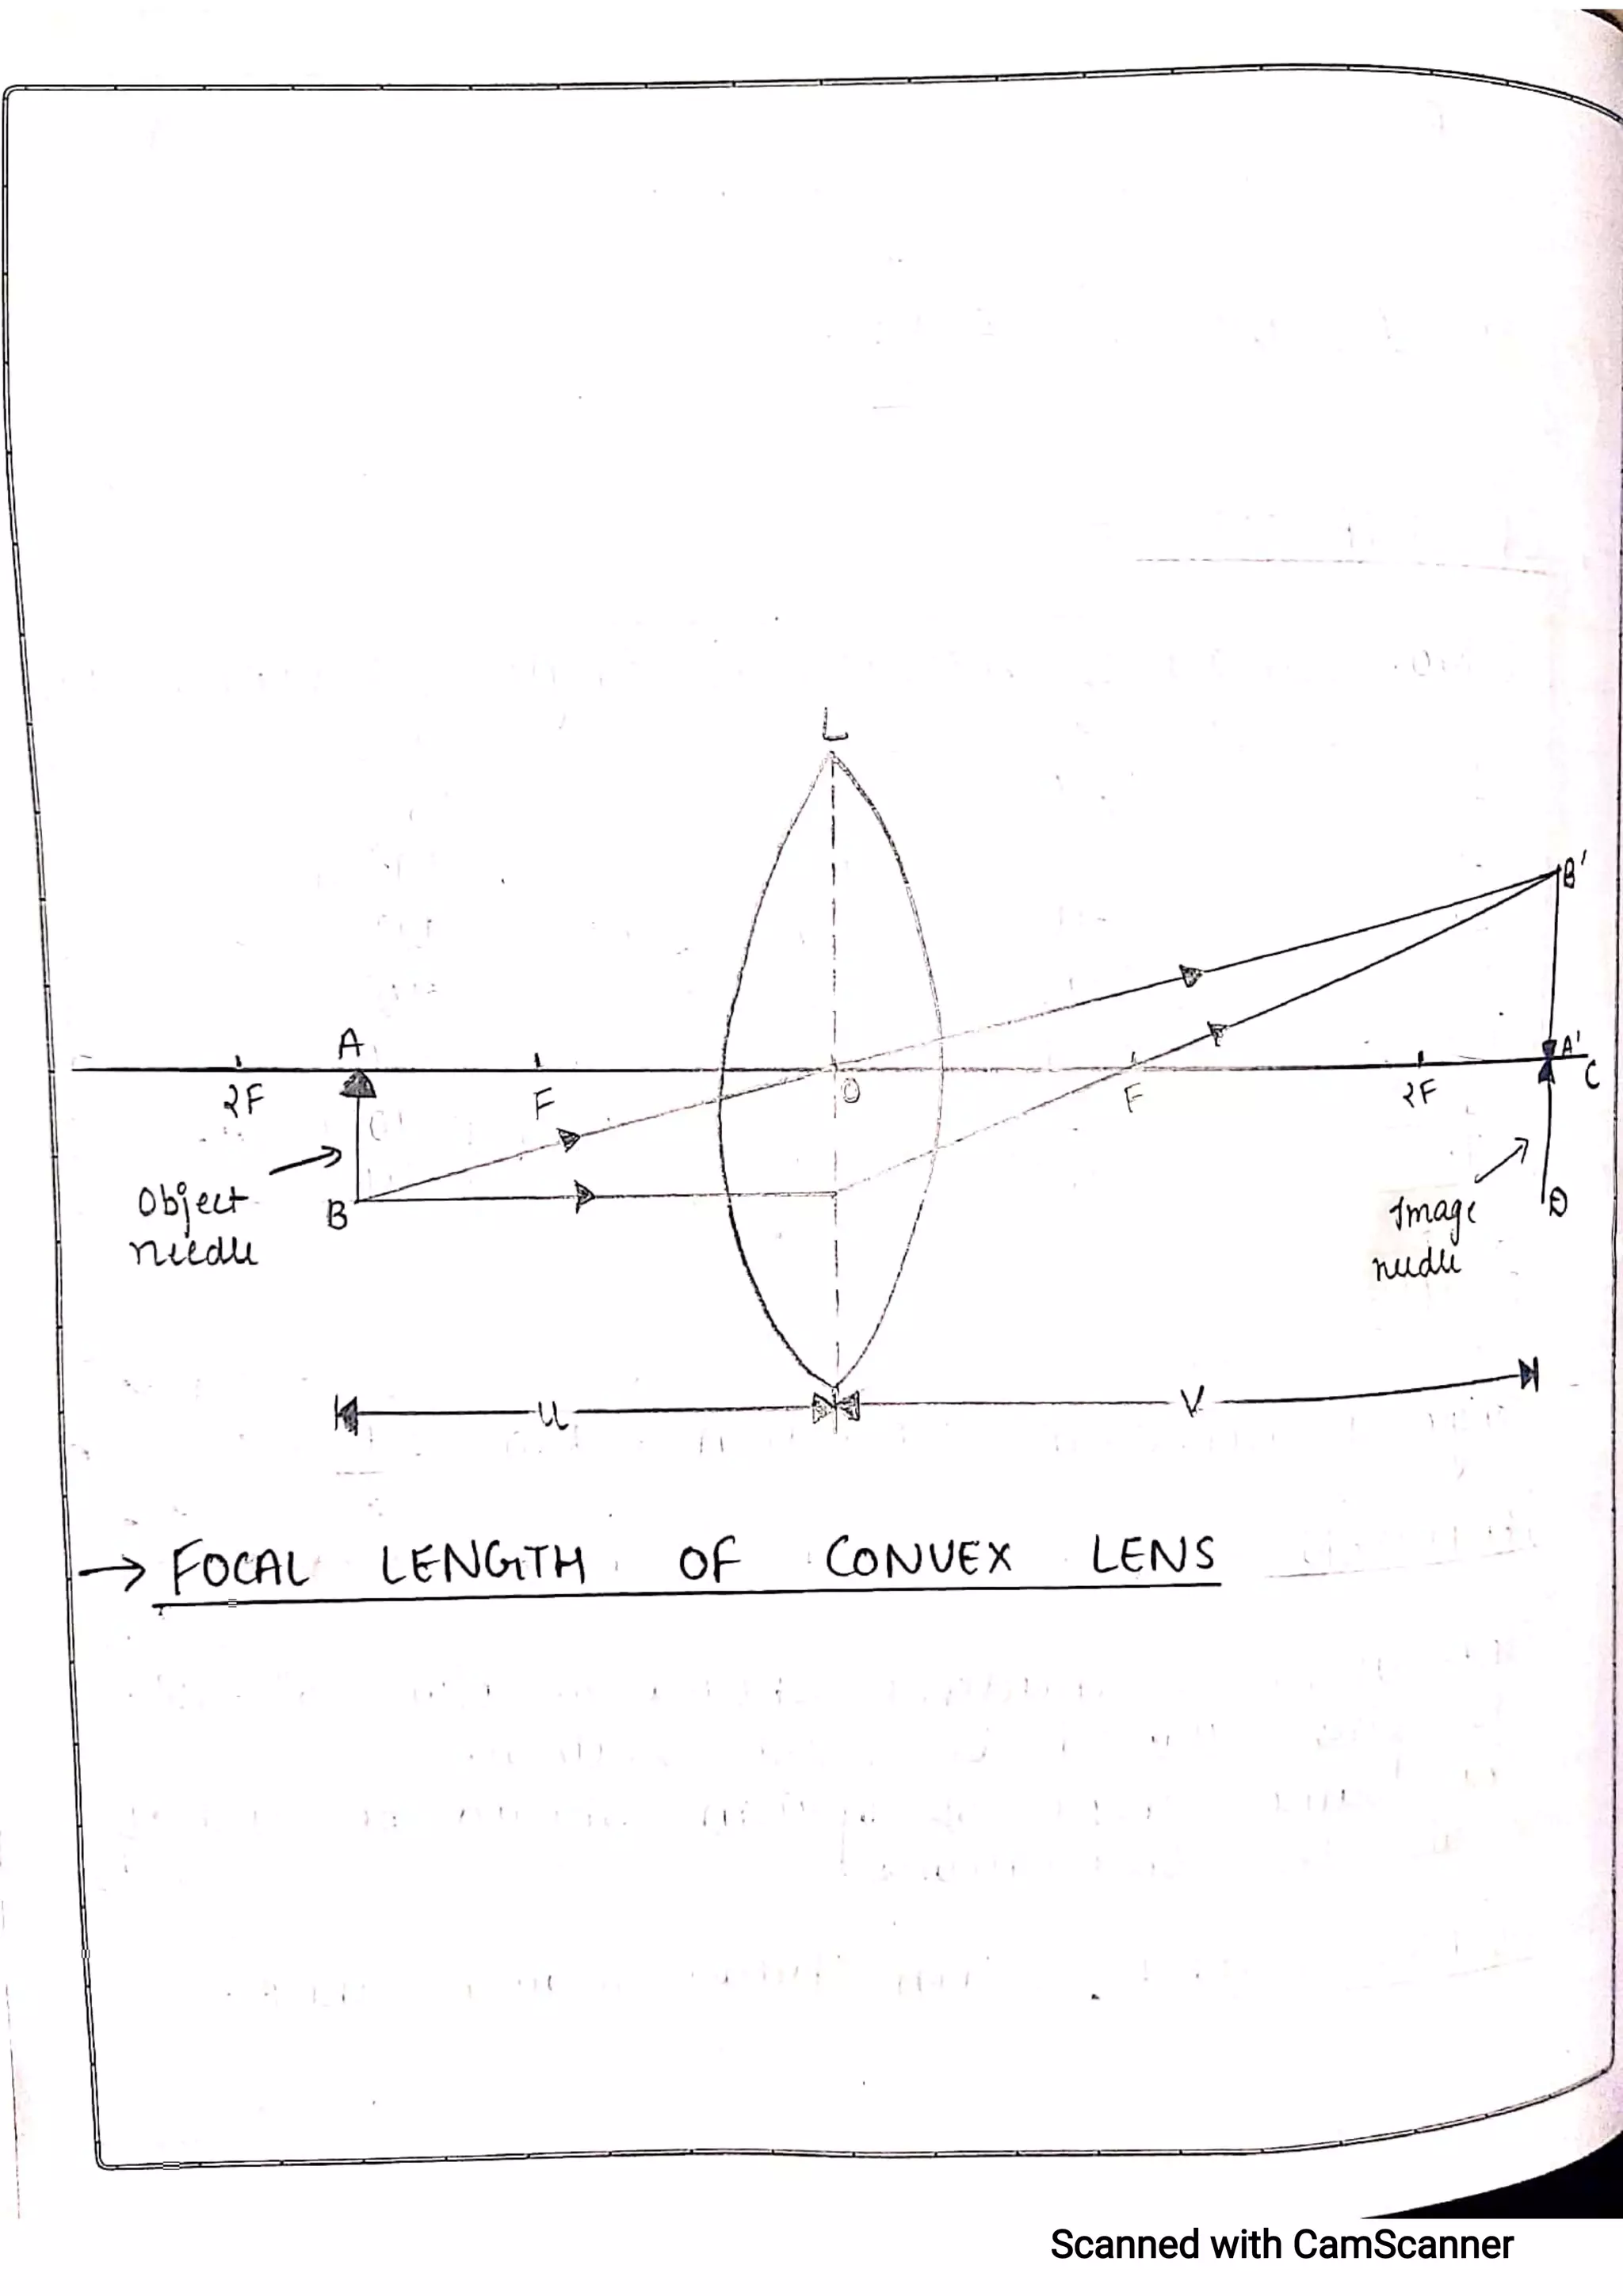 L
B'
A
A'
2F
F
O
F
2F
C
Object
needle
B
Image
needle
D
u
V
→ FOCAL LENGTH OF CONVEX LENS
Scanned with CamScanner